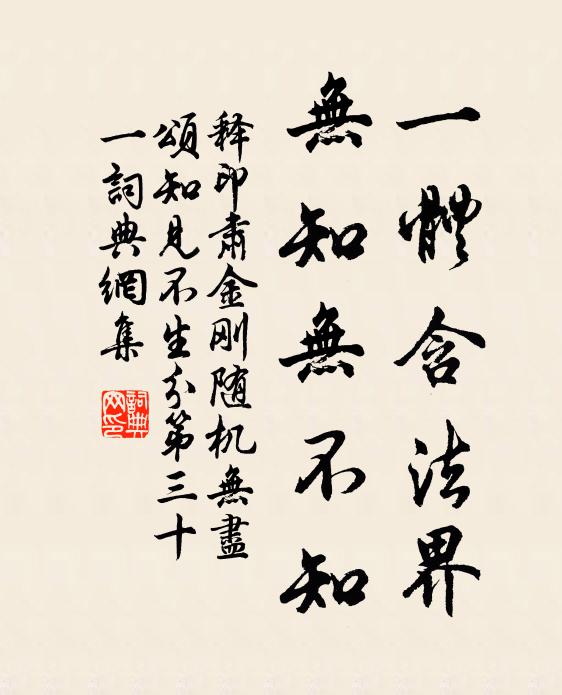 一體含法界
無知無不知
释印肃金刚随机無盡
頌知見不生分第三十
一詞典網集
詞典
网印